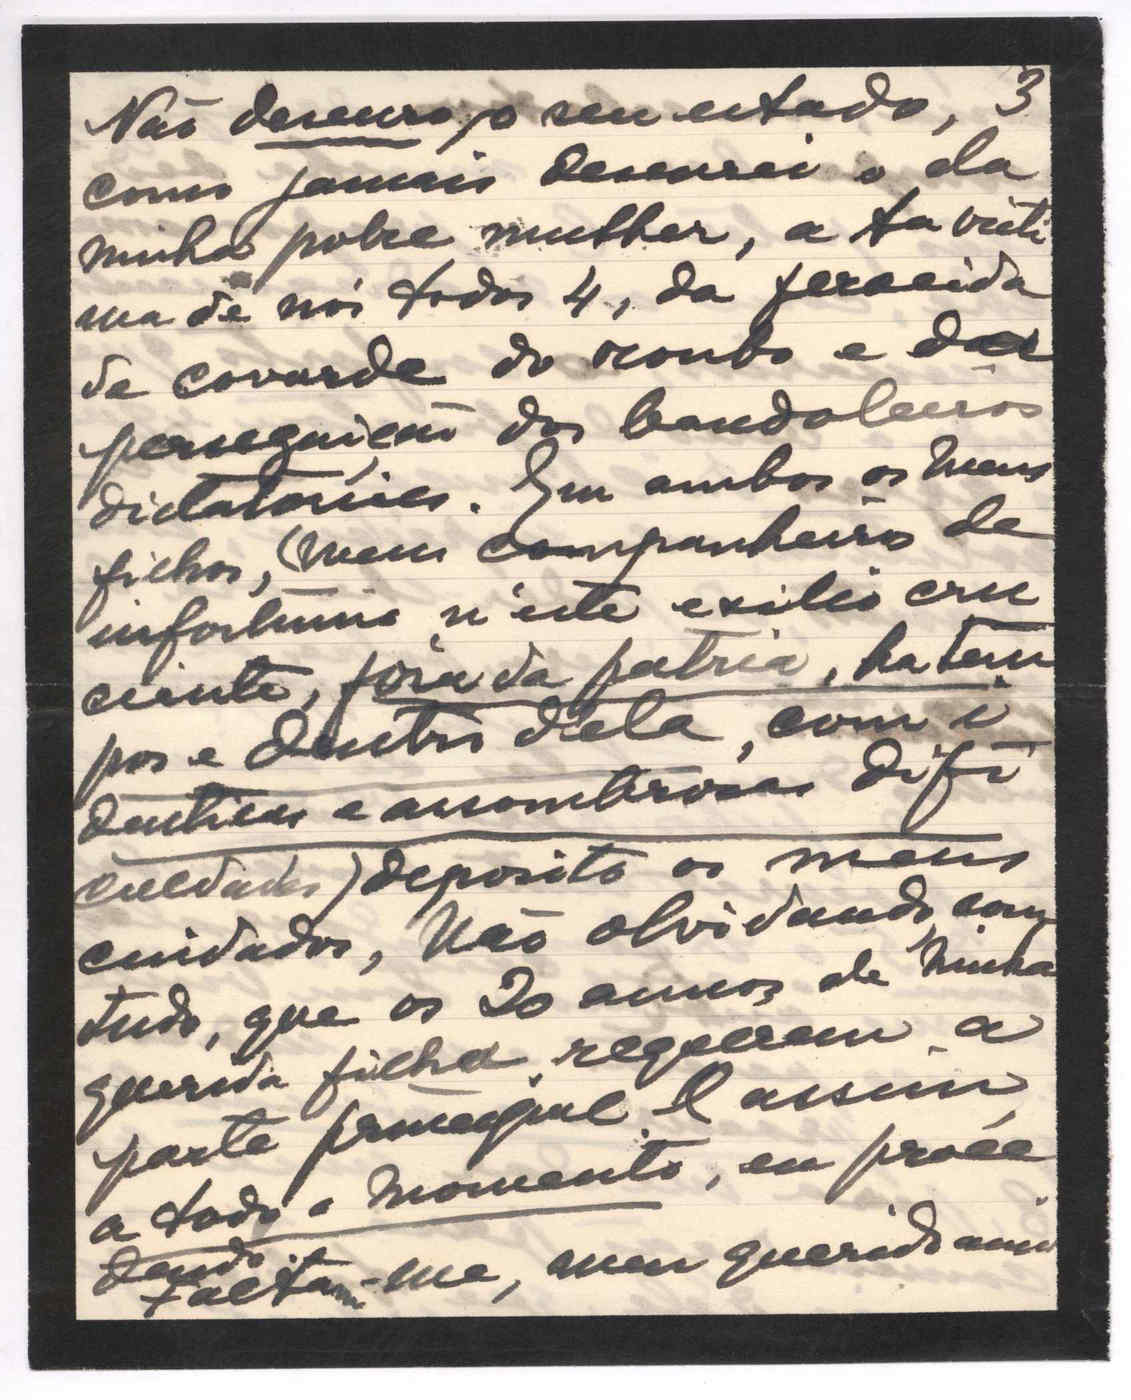 Não descuro, o seu estado, 3
como jamais descurei o da
minha pobre mulher, a 4a victi
ma de nós todos 4, da ferocida
de covarde do roubo e da
perseguição dos bandoleiros
dictatoriaes. Em ambos os meus
filhos, (meus companheiros de
infortunio, n'este exilio cru
ciante, fóra da patria, ha tem
pos e dentro d'ela, com i
denticas e assombrosas difi
culdades) deposito os meus
cuidados, não olvidando, com
tudo, que os 20 annos de minha
querida filha, requerem a
parte principal. E assim,
a todo o momento, eu proce
dendo.
Faltam-me, meu querido ami